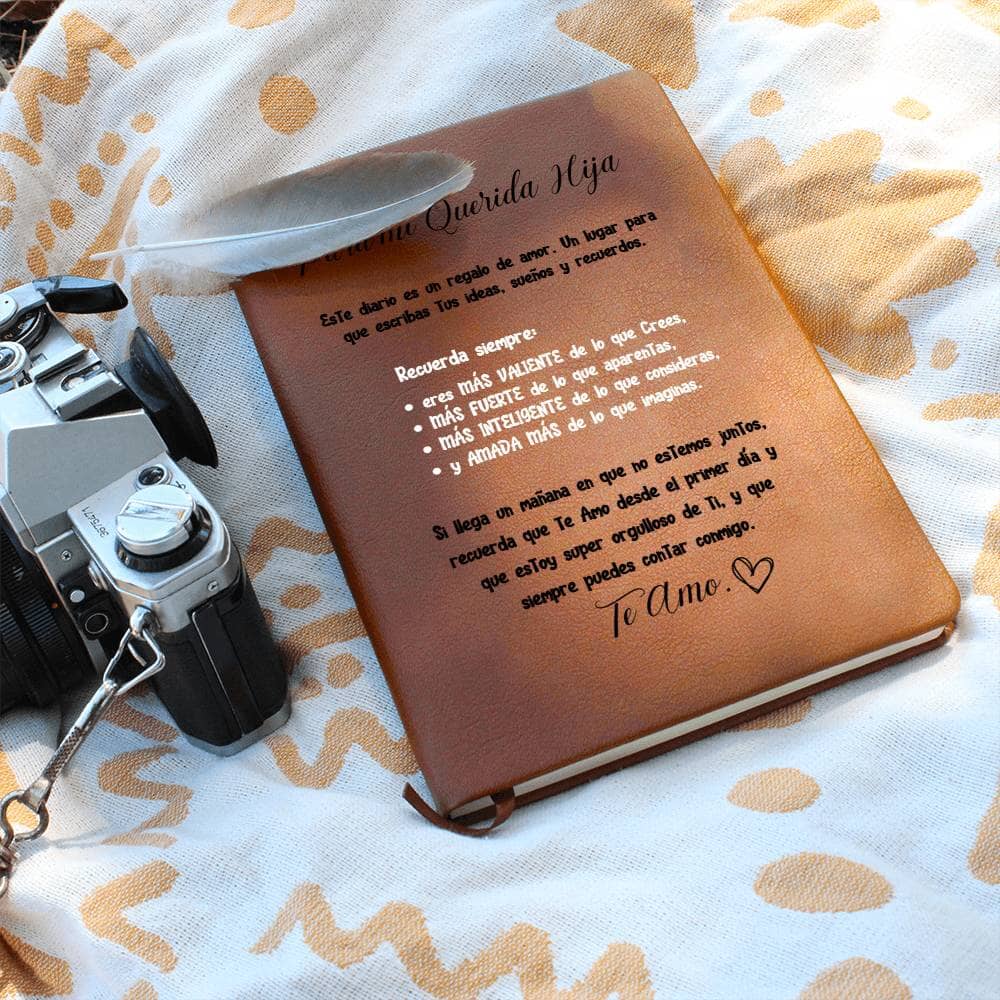 Para mi Querida Hija
Este diario es un regalo de amor. Un lugar para
que escribas Tus ideas, sueños y recuerdos.
Recuerda siempre:
• eres MÁS VALIENTE de lo que Crees,
• MÁS FUERTE de lo que aparentas,
• MÁS INTELIGENTE de lo que consideras,
• y AMADA MÁS de lo que imaginas.
Si llega un mañana en que no estemos juntos,
recuerda que Te Amo desde el primer día y
que estoy super orgulloso de Ti, y que
siempre puedes contar conmigo.
Te Amo.